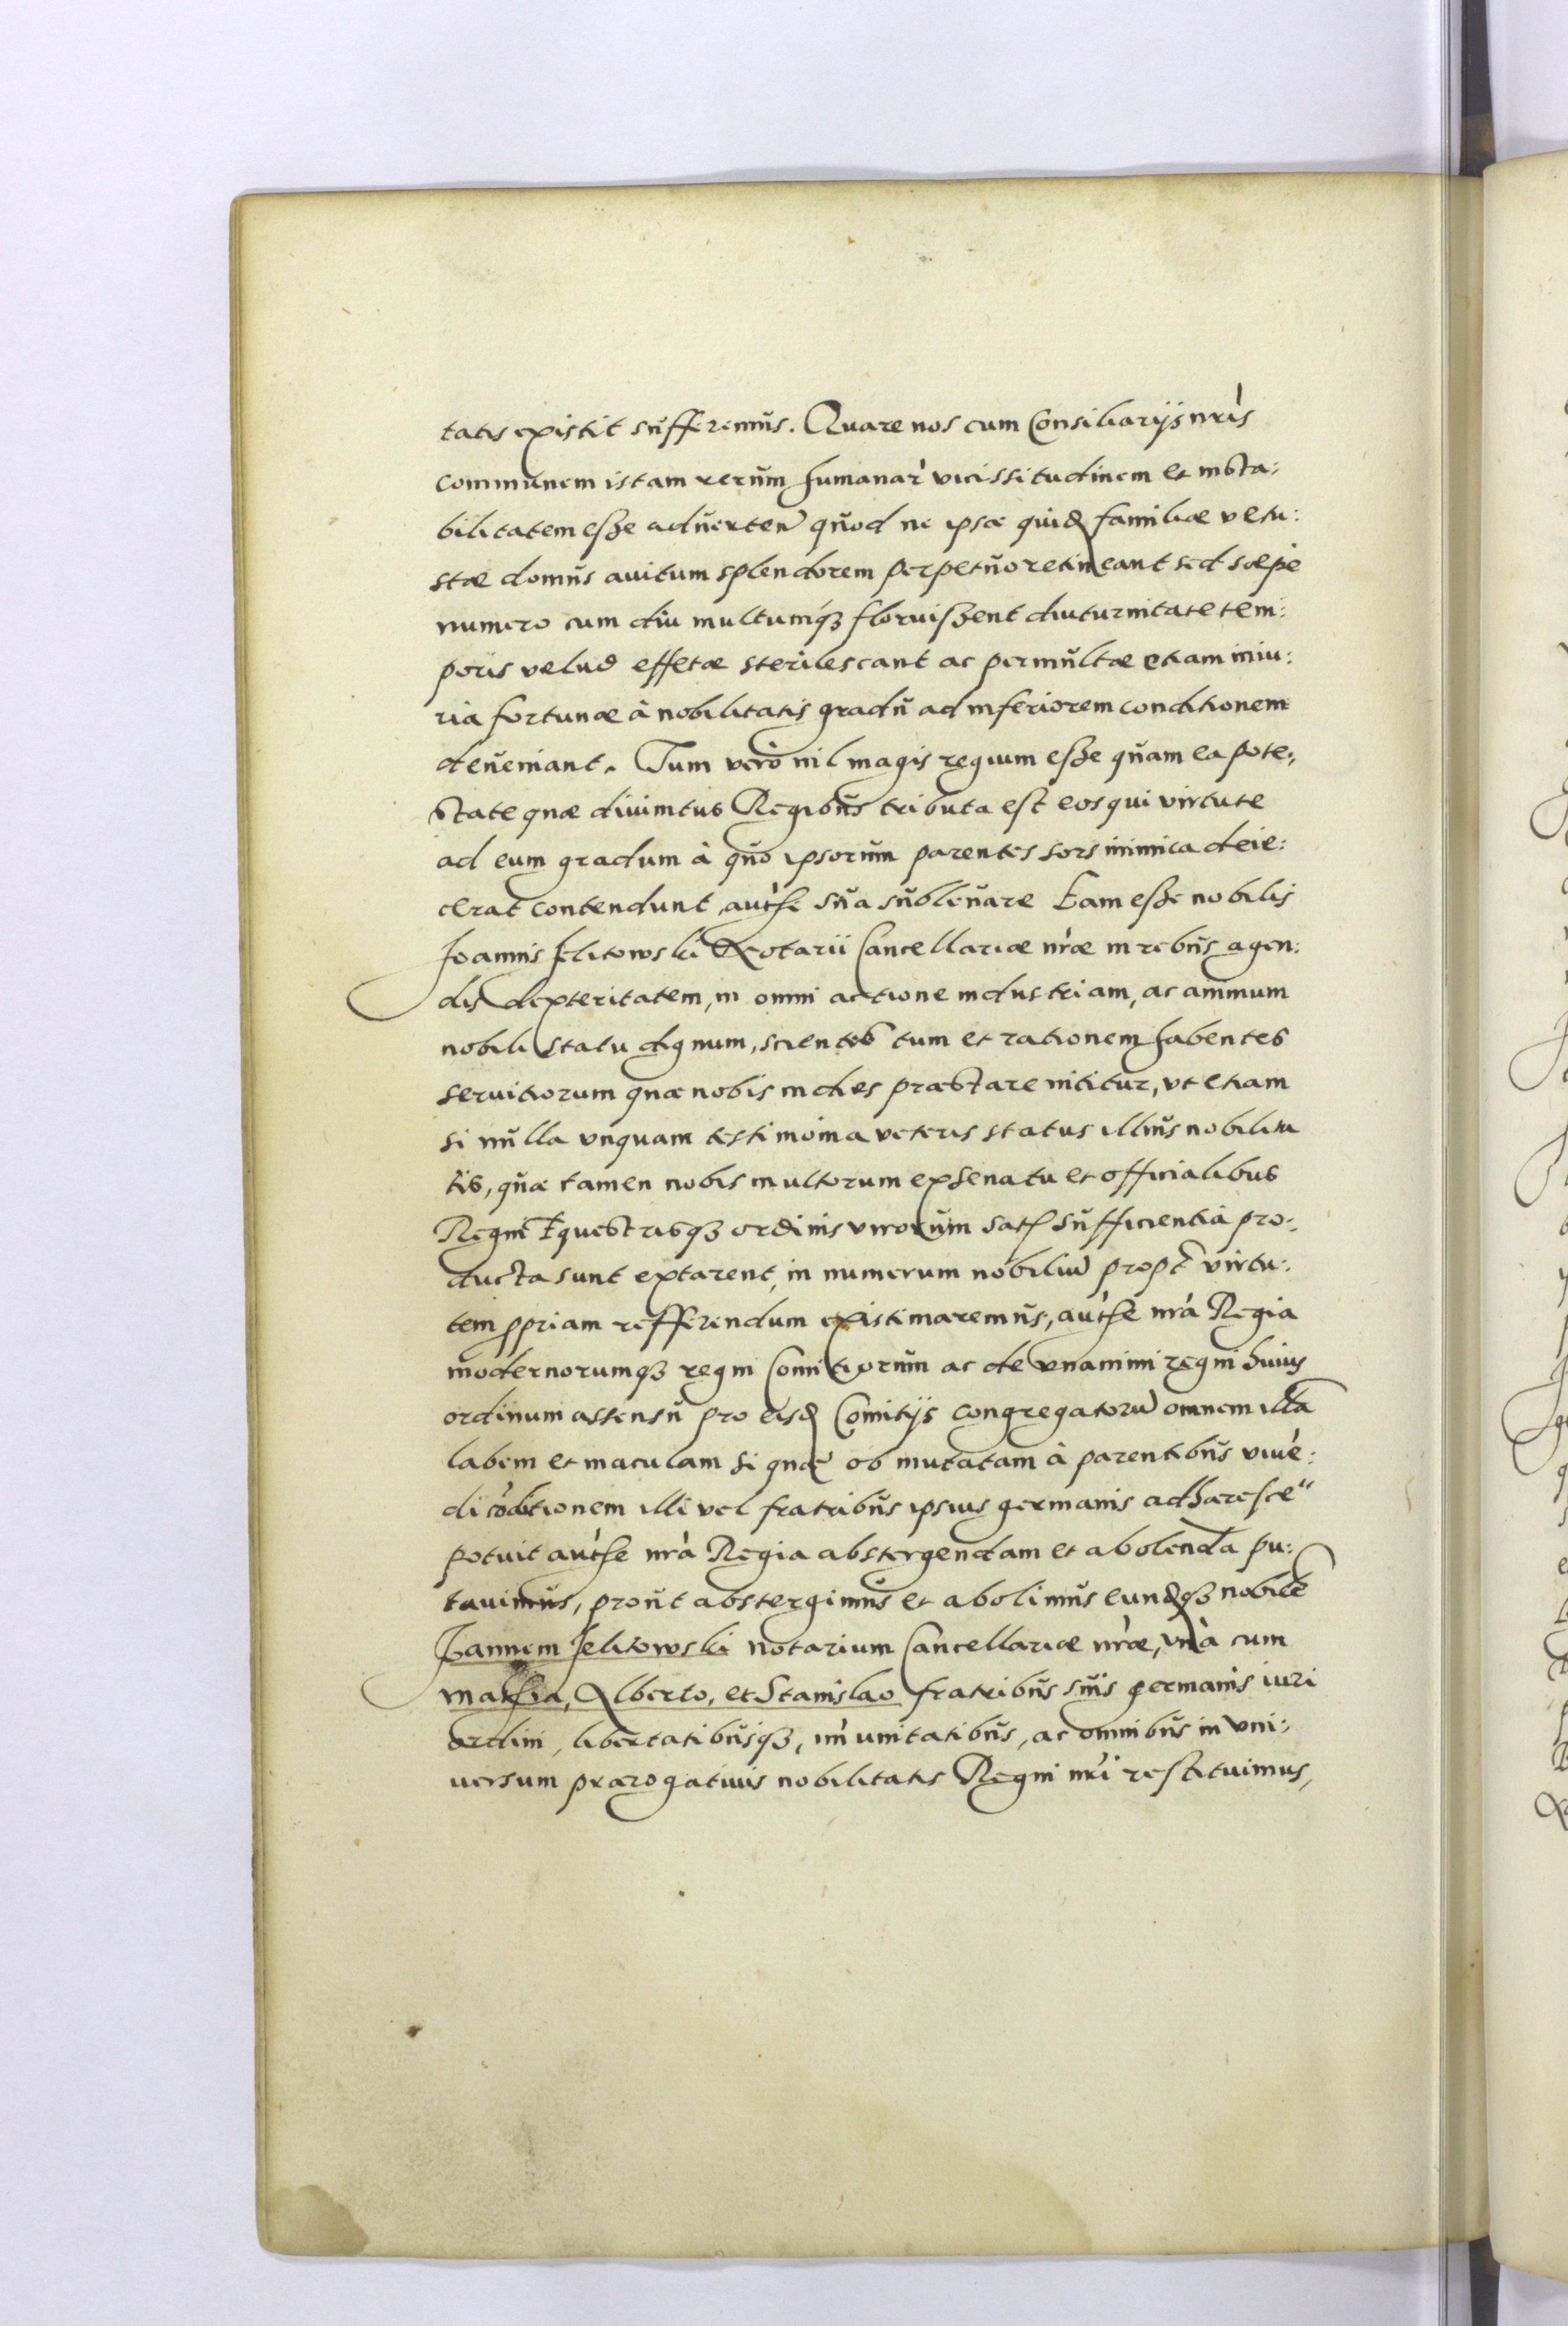 tatis existit sufferemus. Quare nos cum Consiliarijs nr̃is
communem istam rerum humanar̃ vicissitudinem et insta:
bilitatem esse aduerten̄ quod ne ipsæ quid familiæ vetu:
stæ domus auitum splendorem perpetuo retineant sed sæpe
numero cum diu multumq3 floruissent diuturnitate tem:
poris velud effetæ sterilescant ac permultæ etiam iniu:
ria fortunæ à nobilitatis gradu ad inferiorem conditionem
deueniant. Tum verò nil magis regium esse quam ea pote:
state quæ diuinitus Regibus tributa est eos qui virtute
ad eum gradum à quo ipsorum parentes sors inimica deie:
cerat contendunt authẽ sua subleuare Eam esse nobilis
Joannis Jelitowski Notarii Cancellariæ nr̃æ in rebus agen:
dis dexteritatem, in omni actione industriam, ac animum
nobili statu dignum, scientes tum et rationem habentes
seruitiorum quæ nobis indies præstare nititur, vt etiam
si nulla vnquam testimonia veteris status illius nobilita
tis, quæ tamen nobis multorum ex senatu et officialibus
Regni Equestrisq3 ordinis virorum satis sufficientia pro:
ducta sunt extarent, in numerum nobiliū propt̃ virtu:
tem ꝓpriam refferendum existimaremus, authẽ nr̃a Regia
modernorumq3 regni Comitiorum ac de vnanimi regni huius
ordinum assensu pro eisd Comitijs congregatorū omnem illā
labem et maculam si quæ ob mutatam à parentibus viuē:
di cōditionem illi vel fratribus ipsius germanis adhæresce"
potuit authẽ nr̃a Regia abstergendam et abolendā pu:
tauimus, prout abstergimus et abolimus eundq3 nobilē
Joannem Jelitowski notarium Cancellariæ nr̃æ, vnà cum
Mathia, Alberto, et Stanislao fratribus suis germanis iuri
ordini, libertatibusq3, im̃unitatibus, ac omnibus in vni:
uersum prærogatiuis nobilitatis Regni nr̃i restituimus,